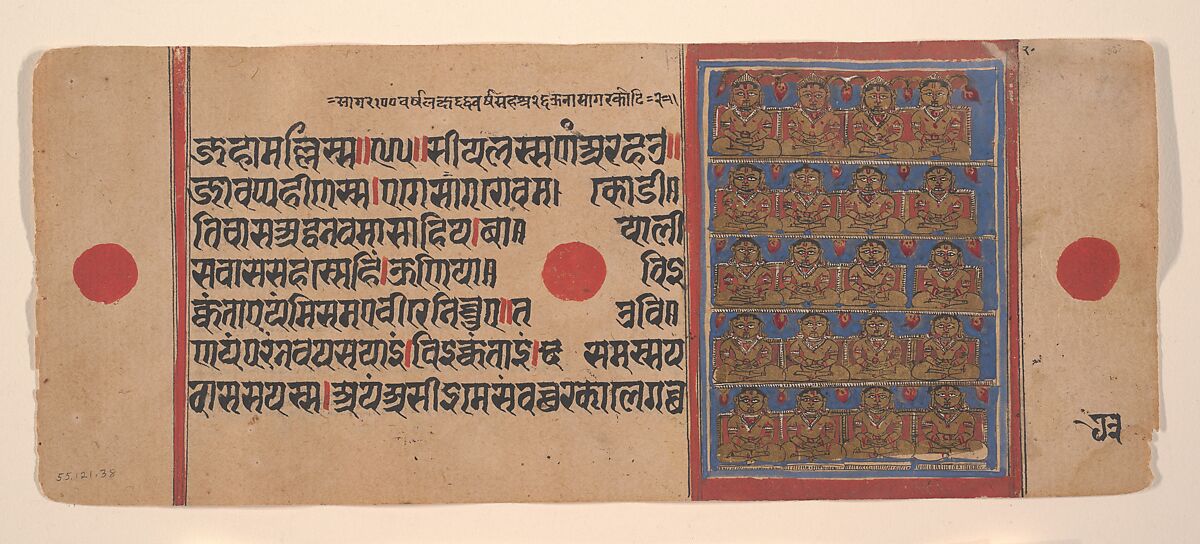 सागर१०० वर्षलक्ष६६वर्षसहस्र२६ऊनासागरकोटि=२=॥
जहामल्लिस्स॥ ॥सीयलस्सणंअरहउ॥
जावप्पहीणस्स।एगासागरोवम। कोडी॥
तिवासअद्धनवमासाहिय।बा॥ याली
सवाससहस्सेहिं।ऊणिया॥ विइ
क्कंताएयंमिसमएवीरेनिव्वुए॥त उवि॥
णयंपरंनवयसयाइं।विइक्कंताइं।द समस्सय
वाससयस्स।अयंअसीइमेसंवच्छरेकालेगच्छ
55.121.38